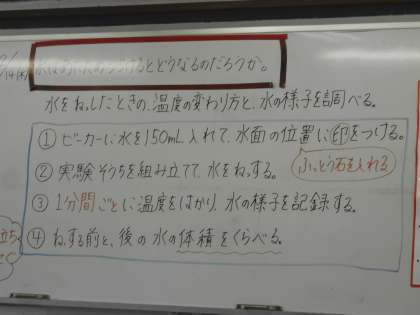 水をねっしつづけるとどうなるのだろうか。
水をねっしたときの、温度の変わり方と、水の様子を調べる。
① ビーカーに水を150mL入れて、水面の位置に印をつける。
② 実験そうちを組み立てて、水をねっする。
ふっとう石を入れる
③ 1分間ごとに温度をはかり、水の様子を記録する。
④ ねっする前と、後の水の体積をくらべる。